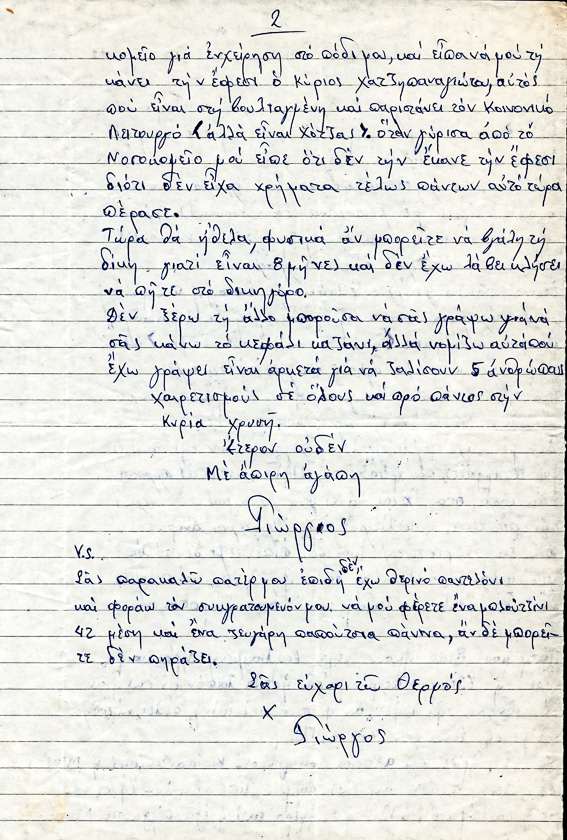 2
κομεῖο γιά ἐνχείρηση στό πόδι μου, καί εἶπα νά μού τή
κάνει τήν ἔφεσι ὁ Κύριος Χατζηπαναγιώτου, αὐτός
πού εἶναι στή βουλιαγμένη καί παριστάνει τόν Κοινονικό
Λειτουργό (ἀλλά εἶναι Χότζας). ὅταν γύρισα ἀπό τό
Νοσοκομεῖο μού εἶπε ὅτι δέν τήν ἔκανε τήν ἔφεσι
διότι δέν εἶχα χρήματα τέλως πάντων αὐτό τώρα
πέρασε.
Τώρα θά ἤθελα, φυσικά ἄν μπορεῖτε νά βγάλη τή
δίκη γιατί εἶναι 8 μῆνες καί δέν ἔχω λάβει κλήσει
νά πῆτε στό δικηγόρο.
Δέν ξέρω τή ἄλλο μποροῦσα νά σᾶς γράψω γιά νά
σᾶς κάνω τό κεφάλι καζάνι, ἀλλά νομίζω αὐτά πού
ἔχω γράψει εἶναι ἀρκετά γιά νά ζαλίσουν 5 άνθρώπους
χαιρετισμούς σέ ὅλους καί πρό πάντος στήν
Κυρία χρυσῆ.
Ἕτερον οὐδέν
Μέ ἄπιρη ἀγάπη
Γιώργος
Υ.Σ.
Σᾶς παρακαλῶ πατέρ μου ἐπιδή δέν ἔχω θερινό παντελόνι
καί φοράω τόν συγκρατουμενόν μου. νά μού φέρετε ἕνα μπλουτζίνι
42 μέση καί ἕνα ζευγάρη παπούτσια πάννινα, ἄν δέ μπορεῖ-
τε δέν πηράζει.
Σᾶς εὐχαριτῶ Θερμός
Χ
Γιώργος